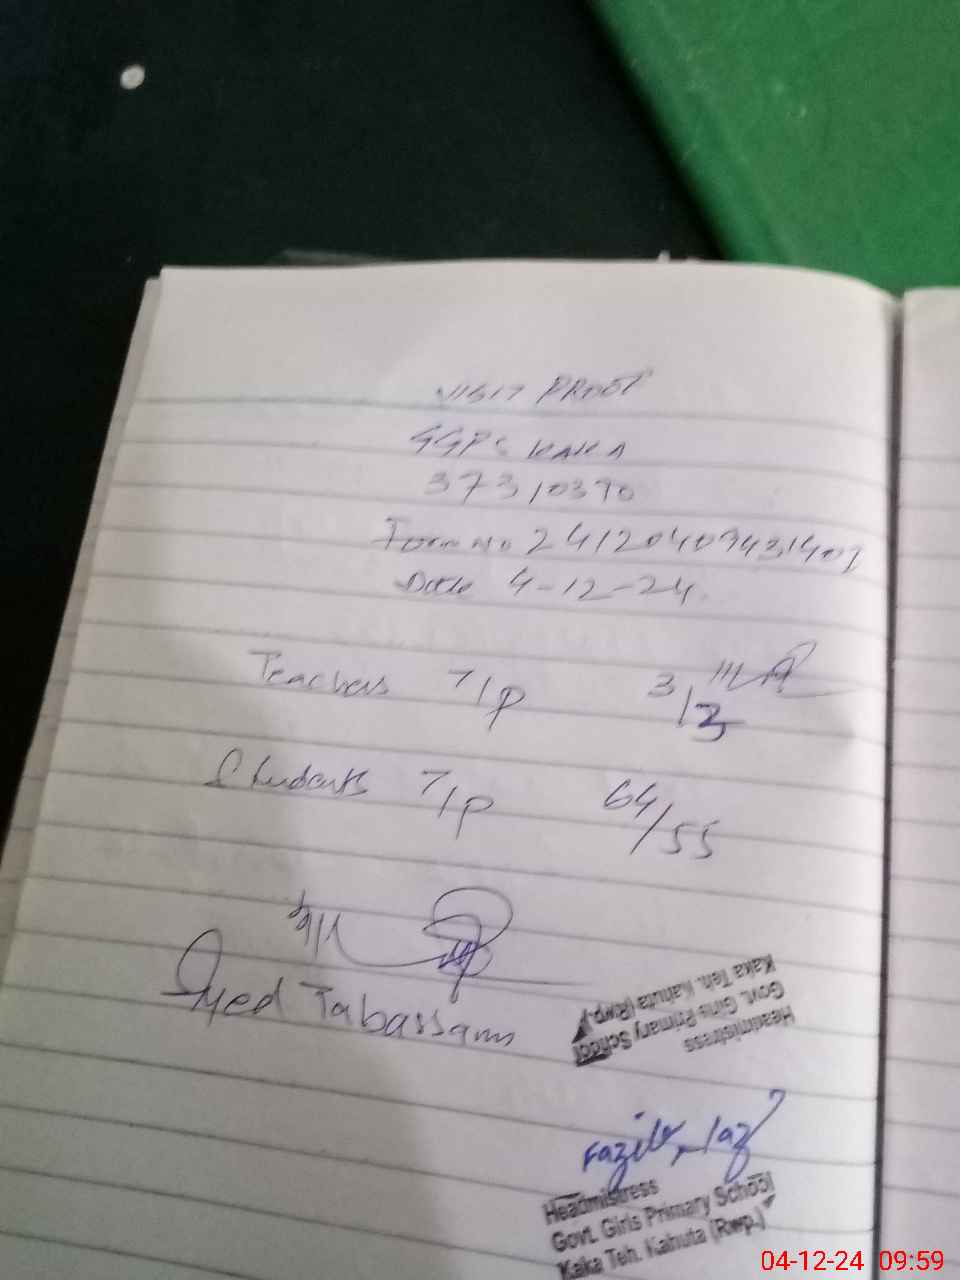 VISIT PROOF
GGPS KAKA
37310390
Form No 24120409431401
Date 4-12-24.
Teachers T/P 3/3
Students T/P 64/55
Syed Tabassam
Headmistress
Govt. Girls Primary School
Kaka Teh. Kahuta (Rwp.)
Headmistress
Govt. Girls Primary School
Kaka Teh. Kahuta (Rwp.)
04-12-24 09:59